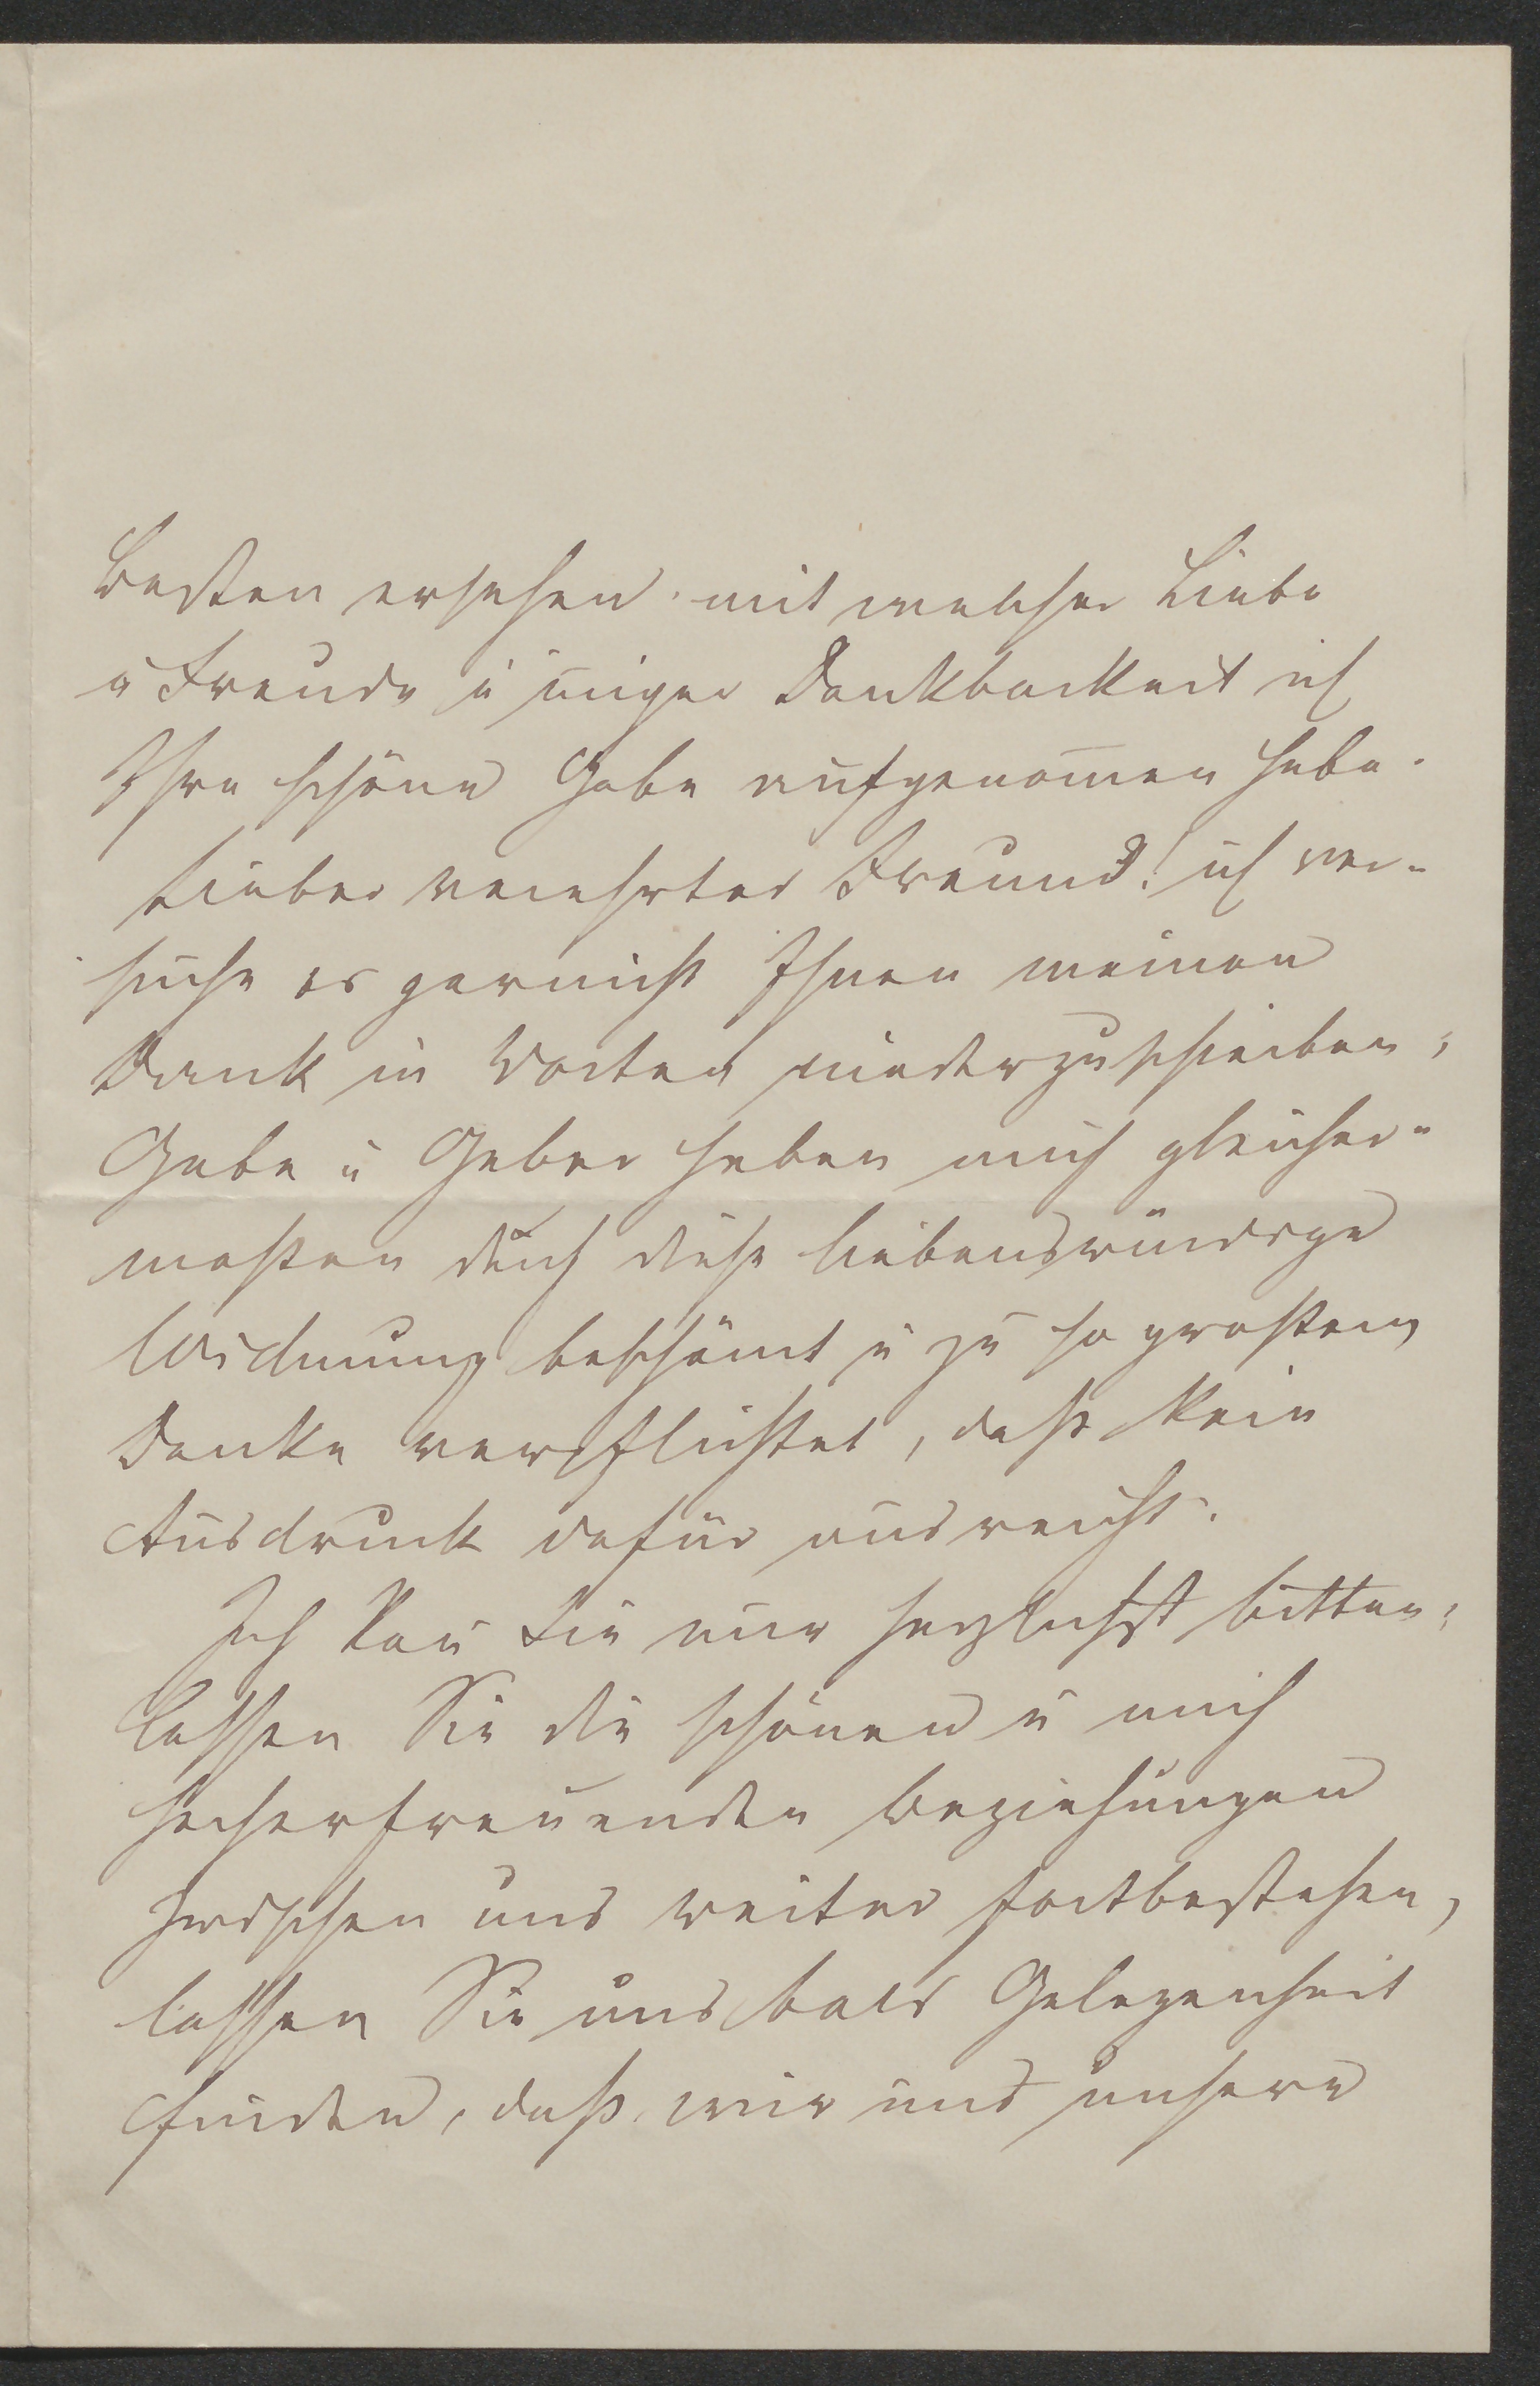 Besten ersehen mit welcher Liebe
u Freude u inniger Dankbarkeit ich
Ihre schöne Gabe aufgenom̄en habe.
Lieber verehrter Freund! ich ver-
suche es garnicht Ihnen meinen
Dank in Worten niederzuschreiben;
Gabe u Geber haben mich gleicher-
maßen durch diese liebenswürdige
Widmung beschämt u zu so großem
Danke verpflichtet, daß kein
Ausdruck dafür ausreicht.
Ich kan̄ Sie nur herzlichst bitten,
lassen Sie die schönen u mich
hocherfreuenden Beziehungen
zwischen uns weiter fortbestehen,
lassen Sie uns bald Gelegenheit
finden, daß wir uns unsere